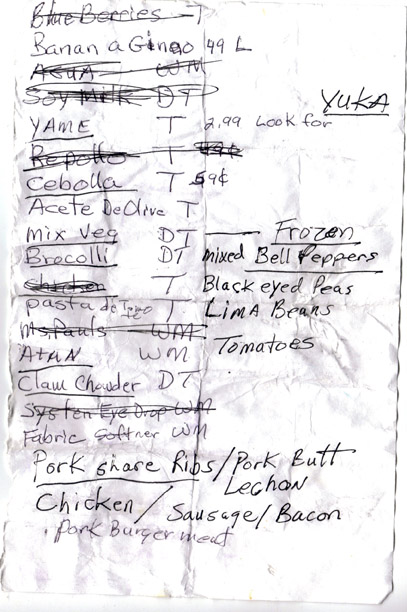 Blue Berries T
Banana Gineo 49 L
Agua WM
Soy Milk DT
YUKA
YAME T 2.99 Look for
Repollo T 49¢
Cebolla T 59¢
Acete De Olive T
mix Veg DT
Frozen
Brocolli DT mixed Bell Peppers
chicken T Black eyed Peas
pasta de T LIMA Beans
Ms. Pauls WM
Atun WM Tomatoes
Clam Chowder DT
Systen Eye Drop WM
Fabric Softner WM
Pork Share Ribs/Pork Butt
Lechon
Chicken/ Sausage/Bacon
Pork Burger meat